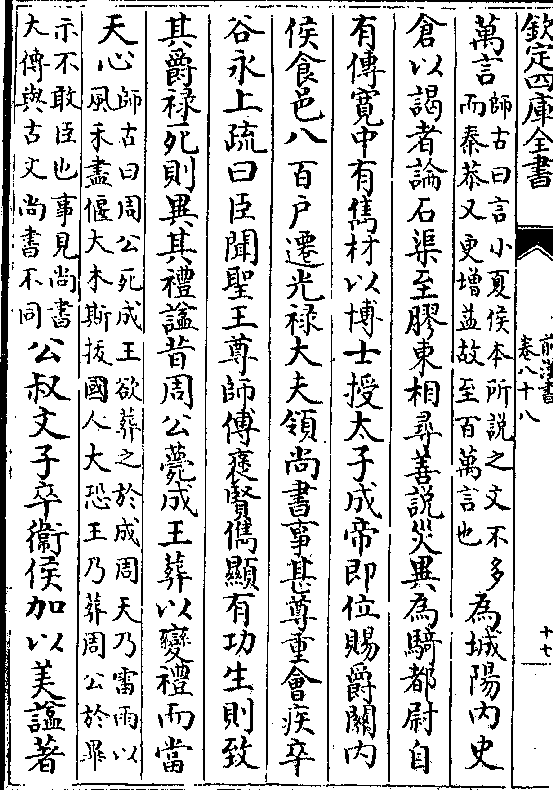 欽定四庫全書
前漢書
卷八十八
十七
萬言師古曰言小夏侯本所說之文不多而秦恭又更增益故至百萬言也為城陽內史
倉以謁者論石渠至膠東相尋善說災異為騎都尉自
有傳寬中有雋材以博士授太子成帝即位賜爵關內
侯食邑八百户遷光祿大夫領尚書事甚尊重會疾卒
谷永上疏曰臣聞聖王尊師傅襃賢儁顯有功生則致
其爵祿死則異其禮諡昔周公薨成王葬以變禮而當
天心師古曰周公死成王欲葬之於成周天乃雷雨以風禾盡偃大木斯拔國人大恐王乃葬周公於畢
示不敢臣也事見尚書大傳與古文尚書不同公叔文子卒衞侯加以美諡著